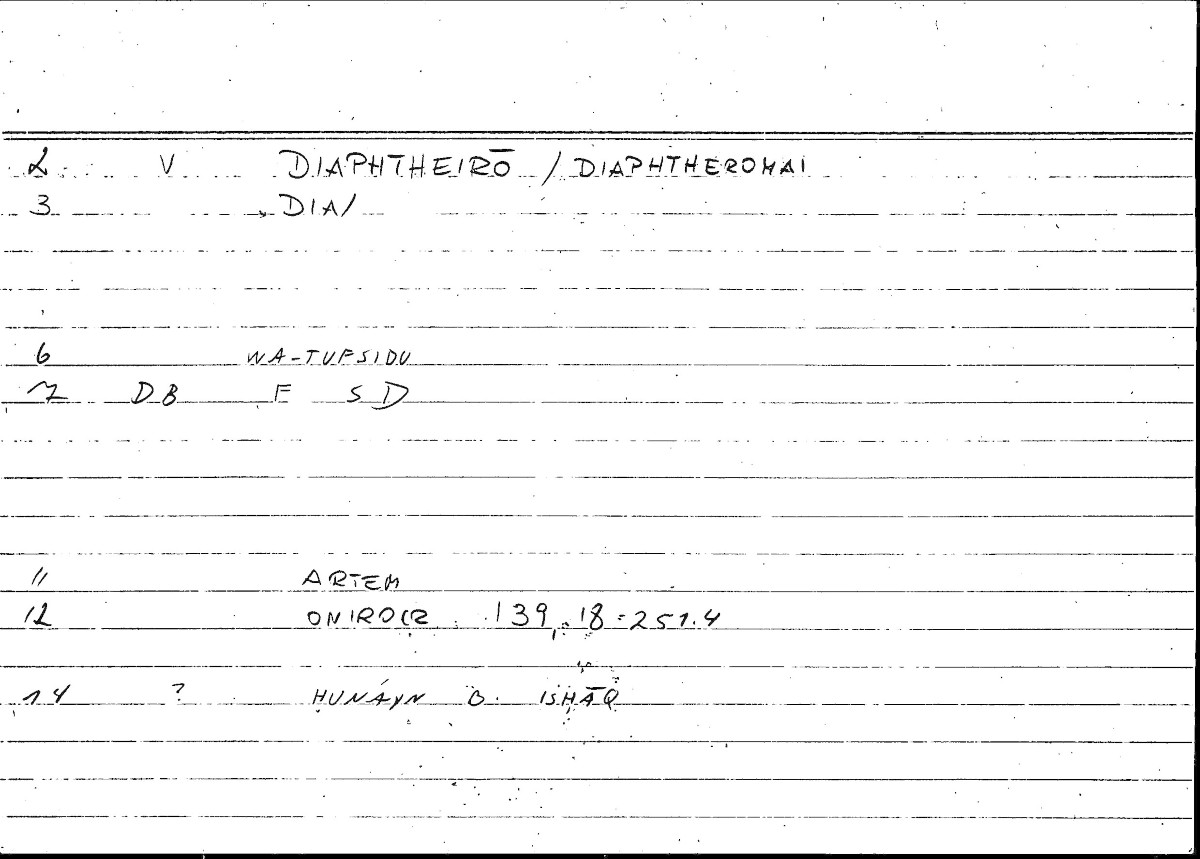 2 V DIAPHTHEIRŌ / DIAPHTHEROMAI
3 DIA/
6 WA-TUFSIDU
7 DB F S D
11 ARTEM
12 ONIROCR 139,18=251.4
14 ? ḤUNAYN B. ISḤĀQ